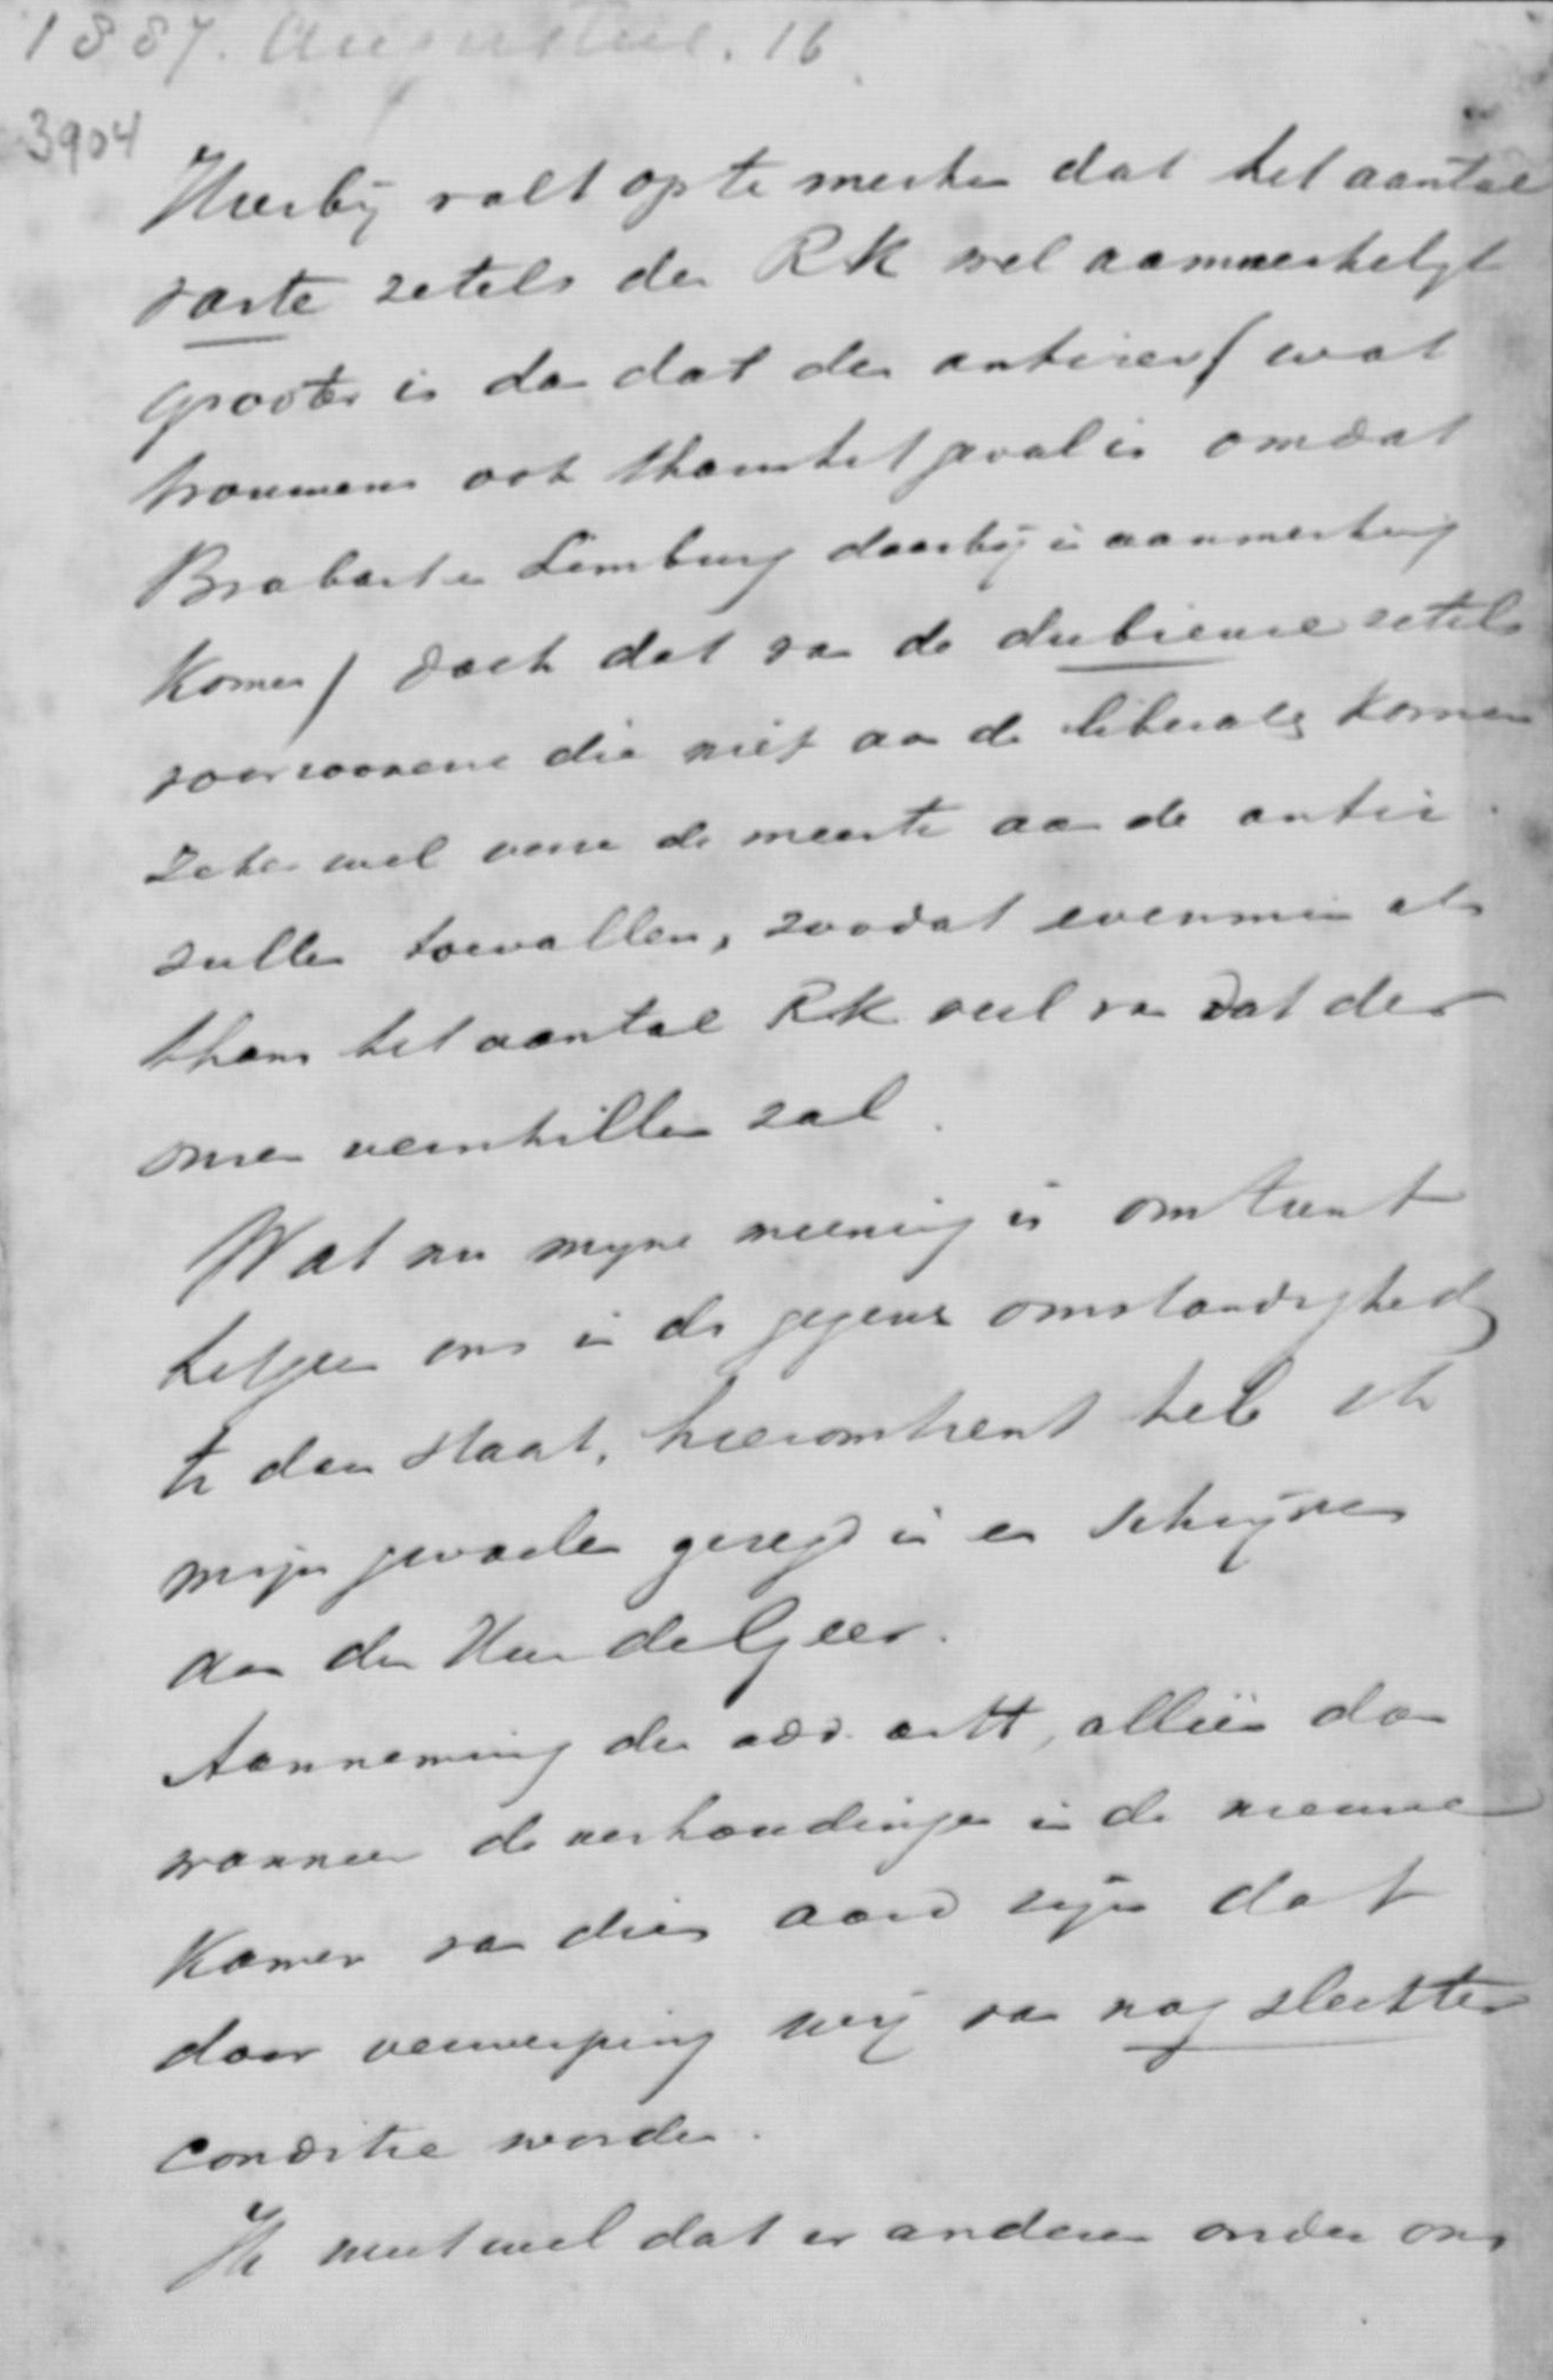 1887. Augustus. 16
3904
Hierbij valt op te merken dat het aantal
vaste zetels der RK wel aanmerkelijk
grooter is dan dat der antirev (wat
trouwens ook thans het geval is omdat
Brabant en Limburg daarbij in aanmerking
komen) doch dat van de dubieuse zetels
voorzoovere die niet aan de liberalen komen
zeker wel verre de meeste aan de antir.
zullen toevallen, zoodat evenmin als
thans het aantal RK veel van dat der
onzen verschillen zal.
Wat nu mijne meening is omtrent
hetgeen ons in de gegeven omstandigheden
te doen staat, hieromtrent heb ik
mijn gevoelen gezegd in een schrijven
aan den Heer de Geer.
Aanneming der add. artt, alleen dan
wanneer de verhoudingen in de nieuwe
Kamer van dien aard zijn dat
door verwerping wij van nog slechter
conditie worden.
Ik weet wel dat er anderen onder ons